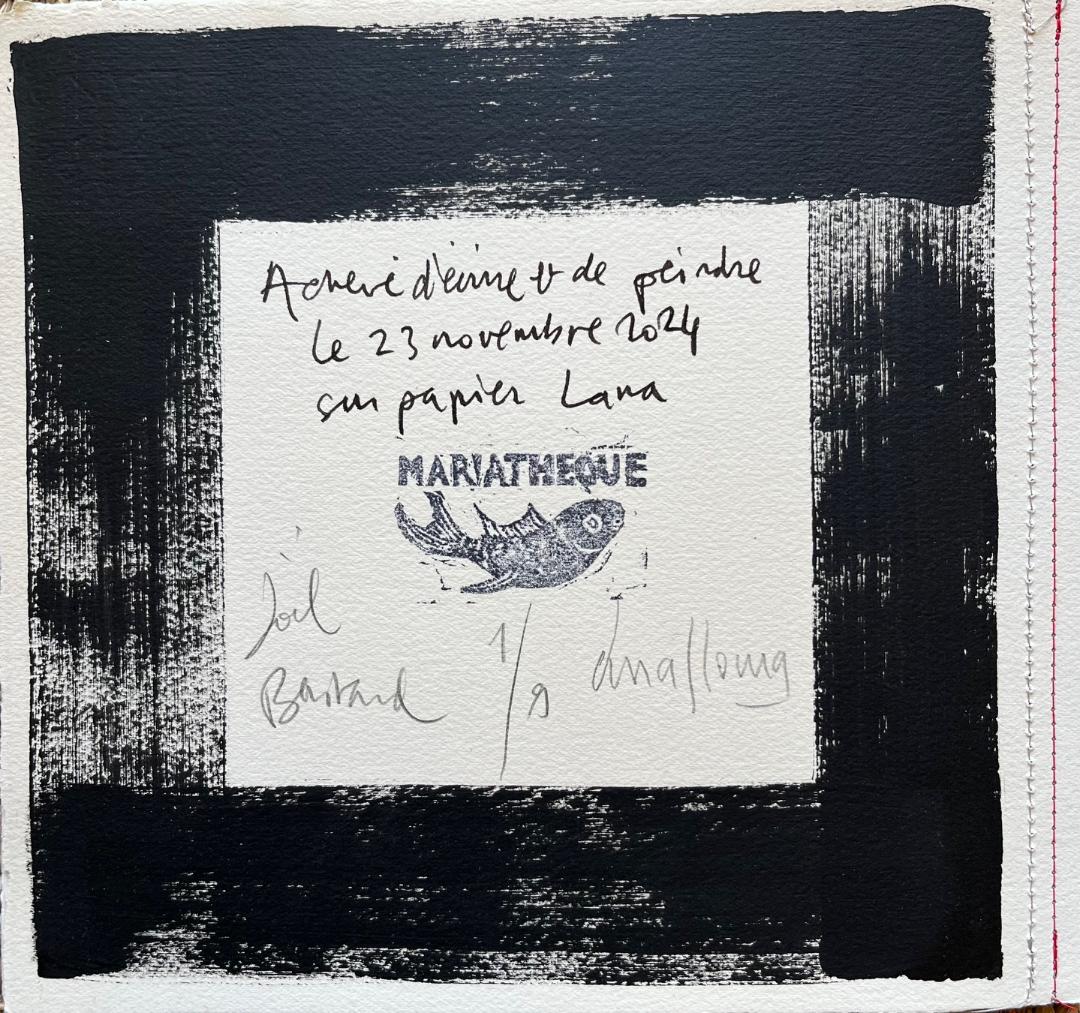 Achevé d'écrire et de peindre
le 23 novembre 2024
sur papier Lana
MARIATHEQUE
Joël
Bastard
1/9